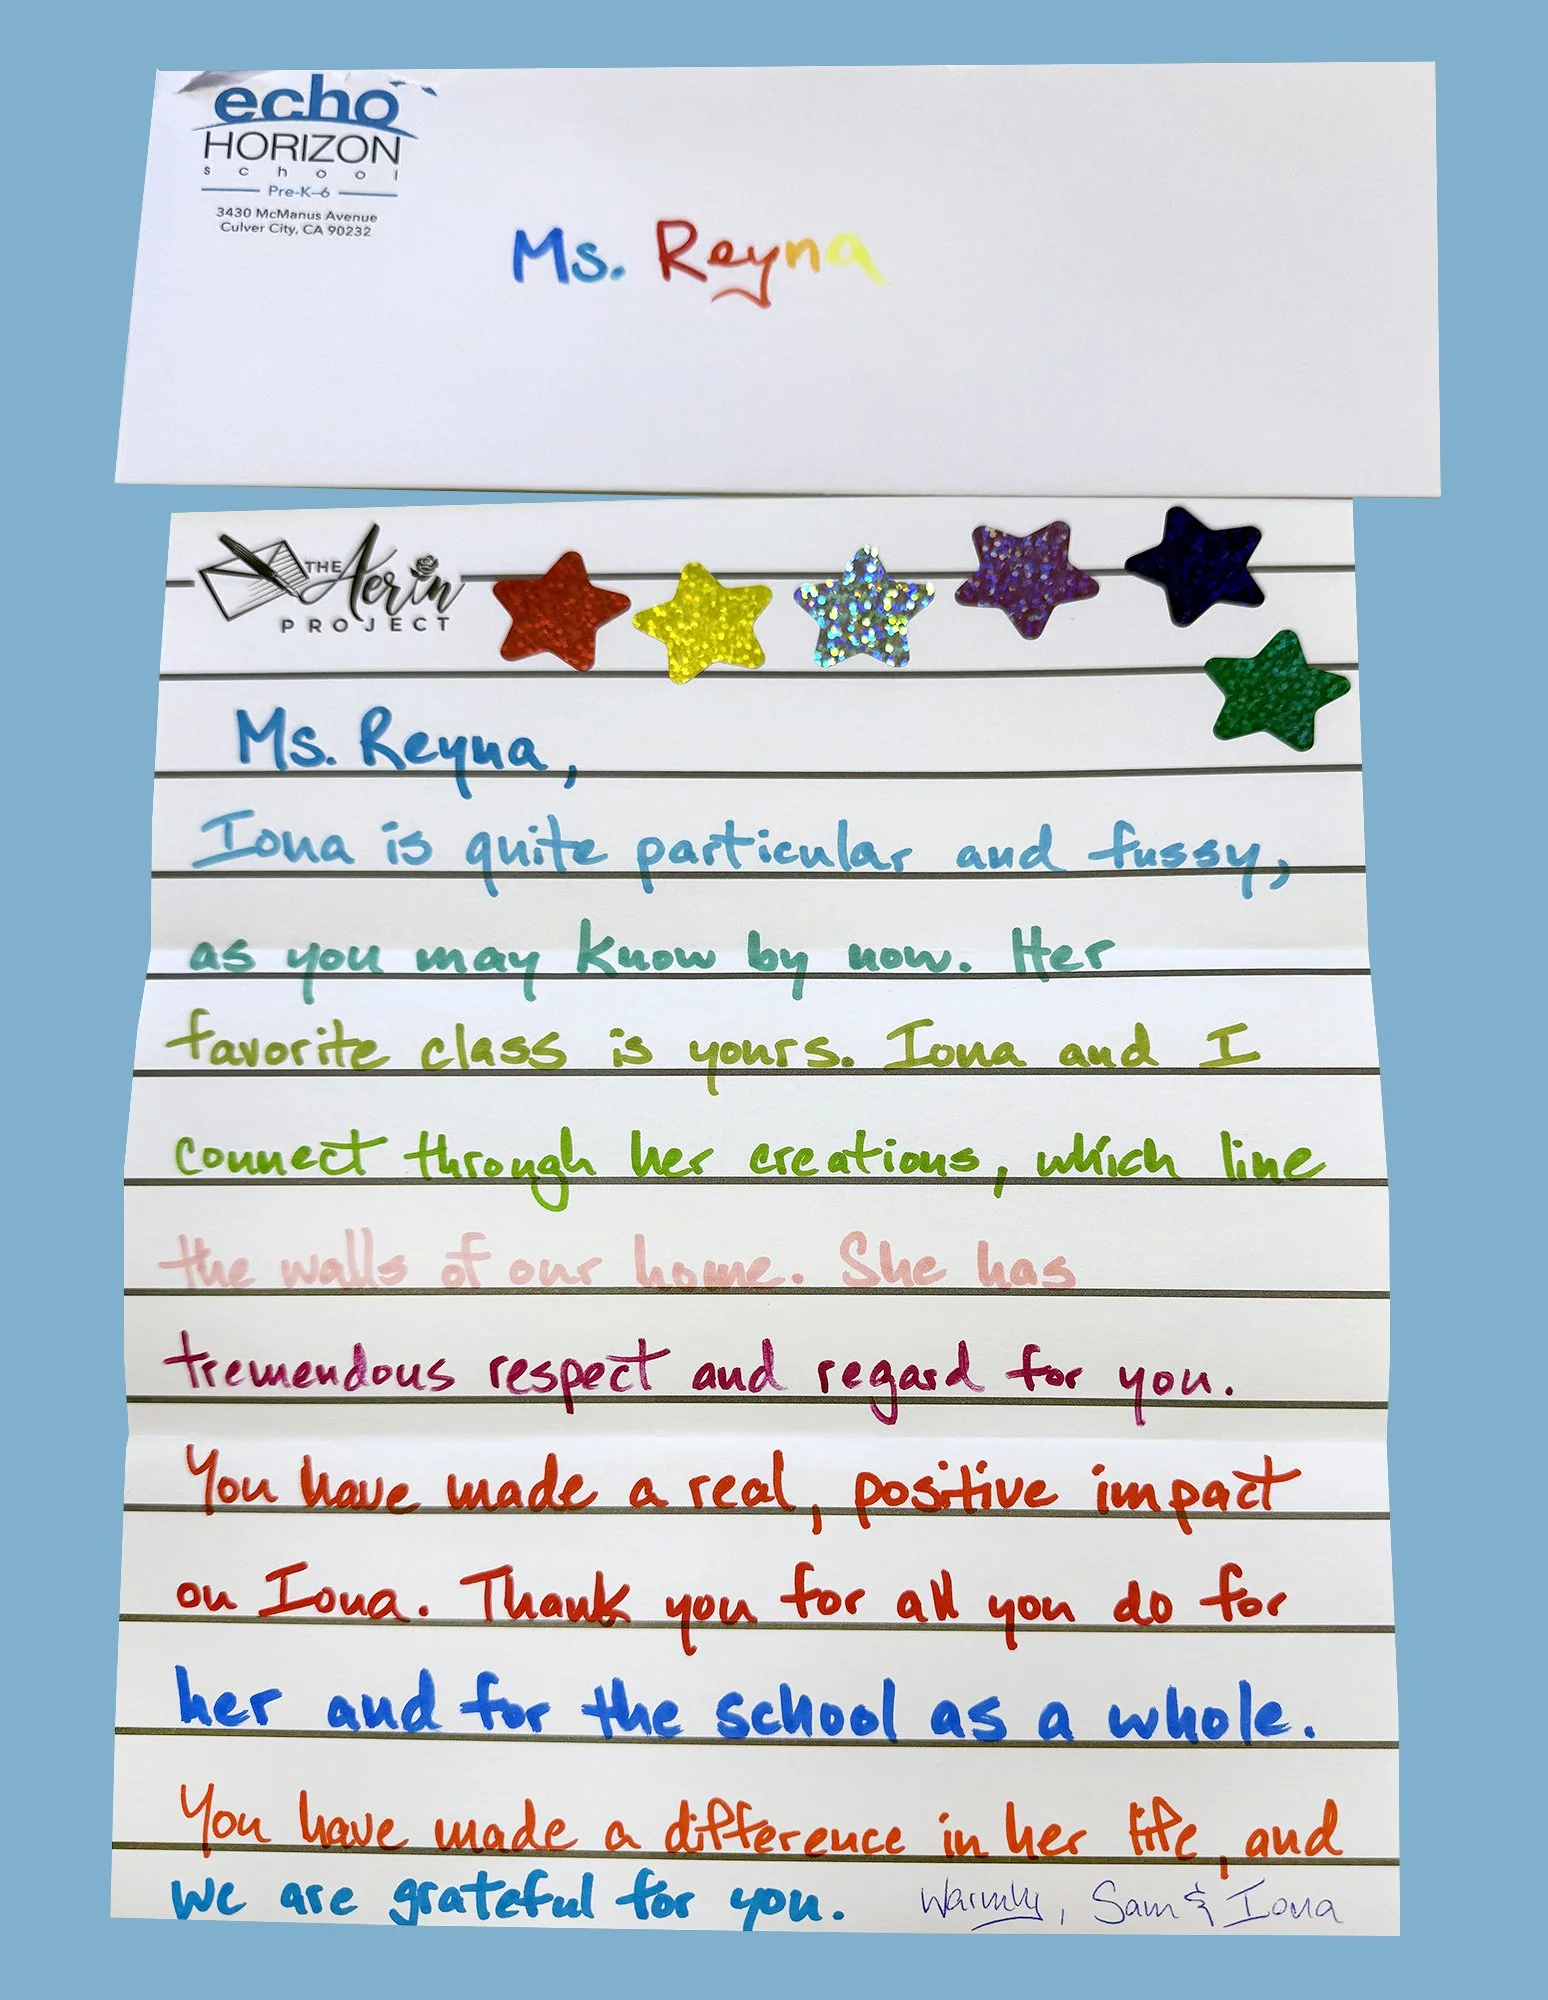 echo
HORIZON
school
Pre-K–6
3430 McManus Avenue
Culver City, CA 90232
Ms. Reyna
THE Aerin
PROJECT
Ms. Reyna,
Iona is quite particular and fussy,
as you may know by now. Her
favorite class is yours. Iona and I
connect through her creations, which line
the walls of our home. She has
tremendous respect and regard for you.
You have made a real, positive impact
on Iona. Thank you for all you do for
her and for the school as a whole.
You have made a difference in her life, and
we are grateful for you. Warmly, Sam & Iona